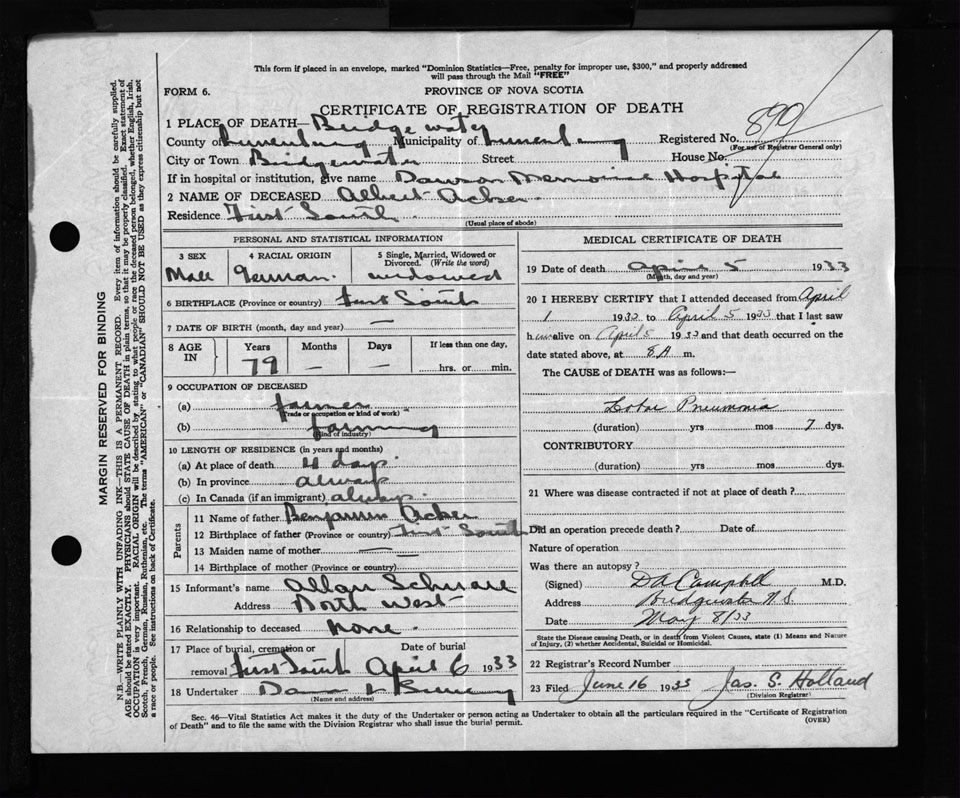 This form if placed in an envelope, marked "Dominion Statistics—Free, penalty for improper use, $300," and properly addressed
will pass through the Mail "FREE"
FORM 6.
PROVINCE OF NOVA SCOTIA
CERTIFICATE OF REGISTRATION OF DEATH
1 PLACE OF DEATH— Bridgewater
County of Lunenburg Municipality of Lunenburg Registered No. 890
(For use of Registrar General only)
City or Town Bridgewater Street House No.
If in hospital or institution, give name Dawson Memorial Hospital
2 NAME OF DECEASED Albert Acker
Residence First South
(Usual place of abode)
PERSONAL AND STATISTICAL INFORMATION
3 SEX 4 RACIAL ORIGIN 5 Single, Married, Widowed or
Divorced. (Write the word)
Male German. widowed
6 BIRTHPLACE (Province or country) First South
7 DATE OF BIRTH (month, day and year) —
8 AGE IN Years Months Days If less than one day,
79 — — hrs. or min.
9 OCCUPATION OF DECEASED
(a) farmer
(Trade or occupation or kind of work)
(b) farming
(Kind of industry)
10 LENGTH OF RESIDENCE (in years and months)
(a) At place of death 4 days
(b) In province always
(c) In Canada (if an immigrant) always
Parents
11 Name of father Benjamin Acker
12 Birthplace of father (Province or country) First South
13 Maiden name of mother —
14 Birthplace of mother (Province or country) —
15 Informant's name Allan
Address North West
16 Relationship to deceased none.
17 Place of burial, cremation or Date of burial
removal First South April 6 1933
18 Undertaker
(Name and address)
MEDICAL CERTIFICATE OF DEATH
19 Date of death April 5 1933
(Month, day and year)
20 I HEREBY CERTIFY that I attended deceased from April
1 1933 to April 5 1933 that I last saw
him alive on April 5 1933 and that death occurred on the
date stated above, at 8 A m.
The CAUSE of DEATH was as follows:—
Lobar Pneumonia
(duration) yrs mos 7 dys.
CONTRIBUTORY
(duration) yrs mos dys.
21 Where was disease contracted if not at place of death?
Did an operation precede death? Date of
Nature of operation
Was there an autopsy?
(Signed) DA Campbell M.D.
Address Bridgewater N.S.
Date May 8/33
State the Disease causing Death, or in death from Violent Causes, state (1) Means and Nature
of Injury, (2) whether Accidental, Suicidal or Homicidal.
22 Registrar's Record Number
23 Filed June 16 1933 Jas. S. Holland
(Division Registrar)
Sec. 46—Vital Statistics Act makes it the duty of the Undertaker or person acting as Undertaker to obtain all the particulars required in the "Certificate of Registration
of Death" and to file the same with the Division Registrar who shall issue the burial permit.
(OVER)
MARGIN RESERVED FOR BINDING
N.B.—WRITE PLAINLY WITH UNFADING INK—THIS IS A PERMANENT RECORD. Every item of information should be carefully supplied.
AGE should be stated EXACTLY. PHYSICIANS should STATE CAUSE OF DEATH in plain terms, so that it may be properly classified. Exact statement of
OCCUPATION is very important. RACIAL ORIGIN will be described by stating to what people or race the deceased person belonged, whether English, Irish,
Scotch, French, German, Russian, Ruthenian, etc. The terms "AMERICAN" or "CANADIAN" SHOULD NOT BE USED as they express citizenship but not
a race or people. See instructions on back of Certificate.